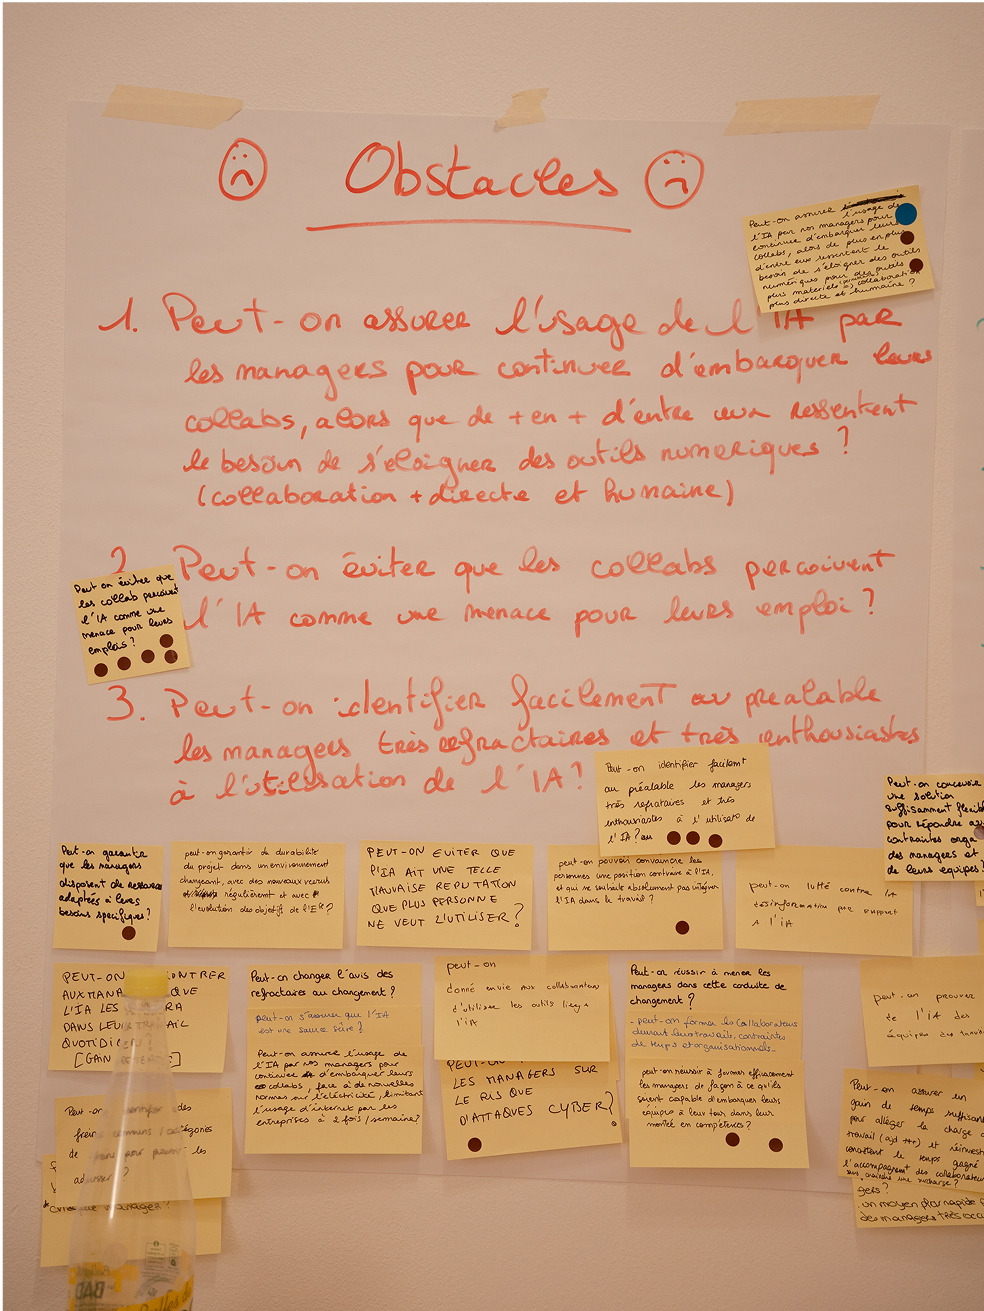 Obstacles
Peut-on assurer l'usage de
l'IA par nos managers pour
continuer d'embarquer leurs
collabs, alors de plus en plus
d'entre eux ressentent le
besoin de s'éloigner des outils
numériques pour des outils
plus materiels collaboration
plus directe et humaine ?
1. Peut-on assurer l'usage de l'IA par
les managers pour continuer d'embarquer leurs
collabs, alors que de + en + d'entre eux ressentent
le besoin de s'éloigner des outils numeriques ?
(collaboration + directe et humaine)
2. Peut-on éviter que les collabs percoivent
l'IA comme une menace pour leurs emploi ?
Peut on éviter que
les collab perçoivent
l'IA comme une
menace pour leurs
emplois ?
3. Peut-on identifier facilement au prealable
les managers très refractaires et très enthousiastes
à l'utilisation de l'IA ?
Peut-on identifier facilemt
au préalable les managers
très refrataires et très
enthousiastes à l'utilisato de
l'IA ? au
Peut-on concevoir
une solution
suffisamment flexible
pour répondre
contraintes orga
des managers et
de leurs équipes ?
Peut-on garantir
que les managers
disposent de ressources
adaptées à leurs
besoins spécifiques ?
peut-on garantir la durabilité
du projet dans un environnement
changeant, avec des nouveaux
régulièremt et avec
l'évolution des objectifs de l'
PEUT-ON EVITER QUE
l'IA AIT UNE TELLE
MAUVAISE REPUTATION
QUE PLUS PERSONNE
NE VEUT L'UTILISER ?
peut on pouvoir convaincre les
personnes une position contraire à l'IA,
et qui ne souhaite absolument pas intégrer
l'IA dans le travail ?
peut-on lutté contre la
désinformation par rapport
à l'iA
PEUT-ON
AUX QUE
L'IA LES
DANS LEUR TRAVAIL
QUOTIDIEN ?
[GAIN
Peut-on changer l'avis des
refractaires au changement ?
peut-on s'assurer que l'IA
est une source sûre ?
Peut-on assurer l'usage de
l'IA par nos managers pour
continuer d'embarquer leurs
collabs, face à de nouvelles
normes sur l'électricité, limitant
l'usage d'internet par les
entreprises à 2 fois / semaine ?
peut-on
donné envie aux collaborateurs
d'utiliser les outils liés a
l'iA
PEUT-ON
LES MANAGERS SUR
LE RISQUE
D'ATTAQUES CYBER ?
Peut-on réussir à mener les
managers dans cette conduite de
changement ?
- peut-on former les Collaborateurs
durant leur travail, contraintes
de temps et organisationnels.
peut-on réussir à former efficacement
les managers de façon à ce qu'ils
soient capable d'embarquer leurs
équipe à leur tour dans leur
montée en compétences ?
peut-on prouver
de l'iA des
équipes
Peut-on des
freins communs / catégories
de pour les
?
manager ?
Peut-on assurer un
gain de temps suffisant
pour alléger la charge
travail (ajd +++) et réinvest
le temps gagné
l'accompagnemt des collaborateurs
sans craindre une surcharge ?
gers ?
un moyen plus rapide
des managers très occ